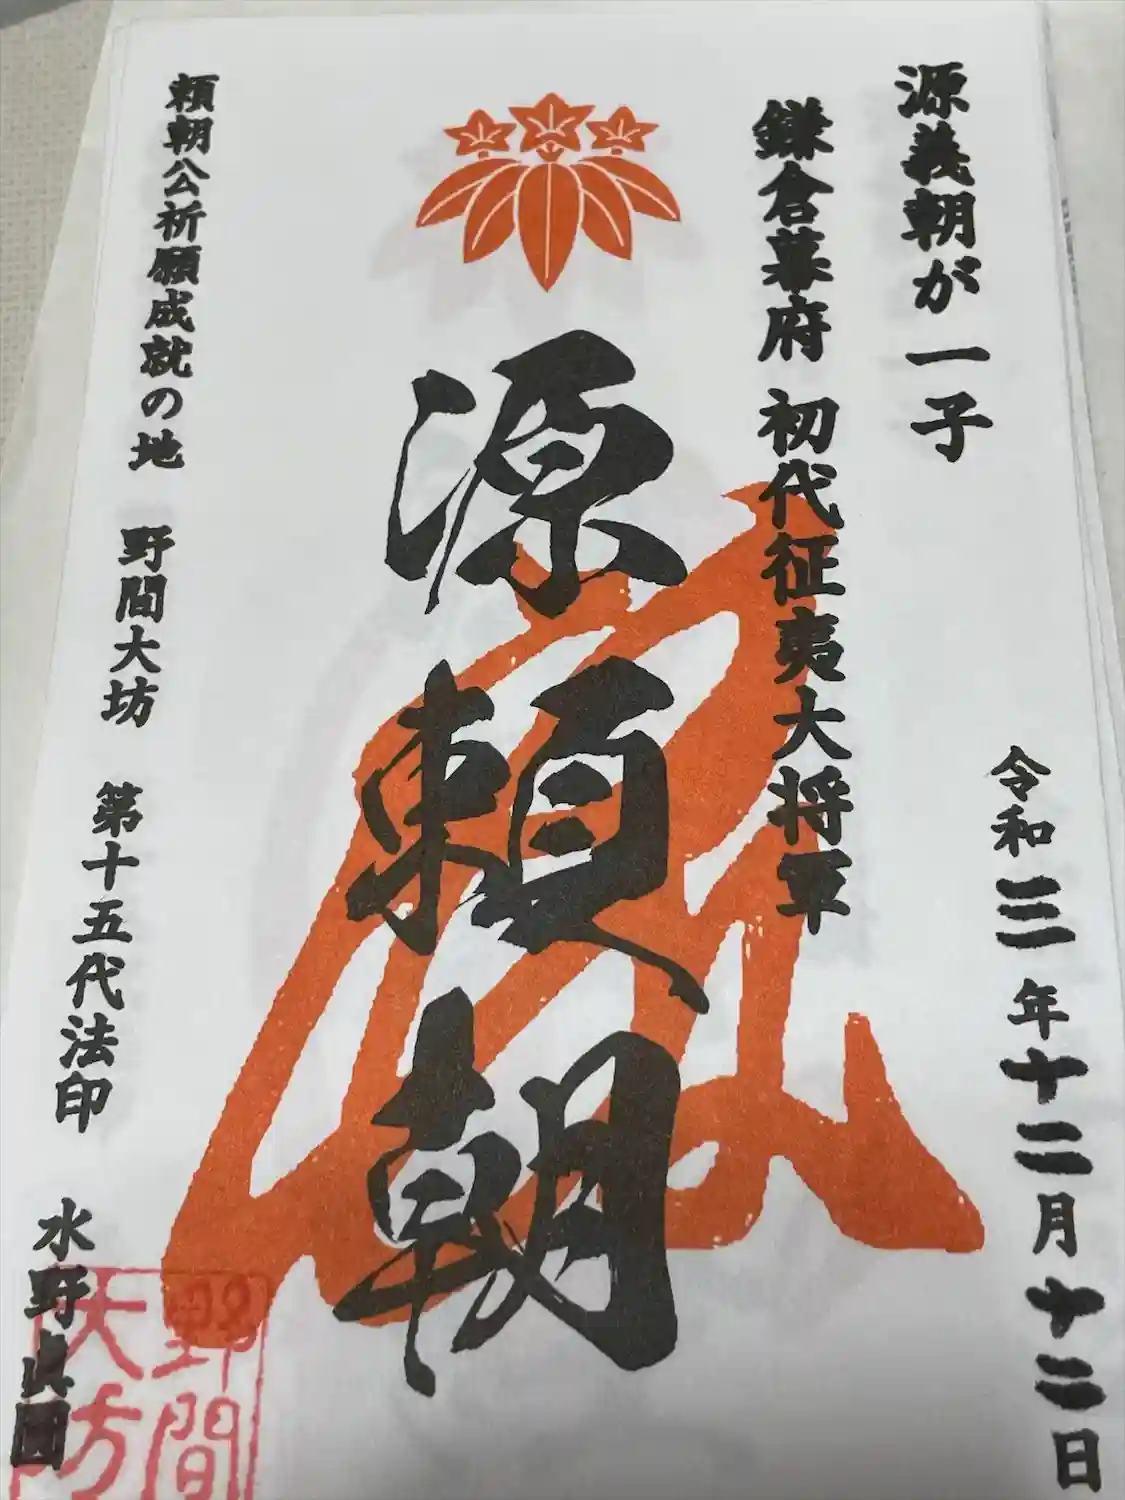 源義朝が一子
鎌倉幕府 初代征夷大将軍
令和三年十二月十二日
源頼朝
頼朝公祈願成就の地 野間大坊 第十五代法印 水野真圓
野間
大坊